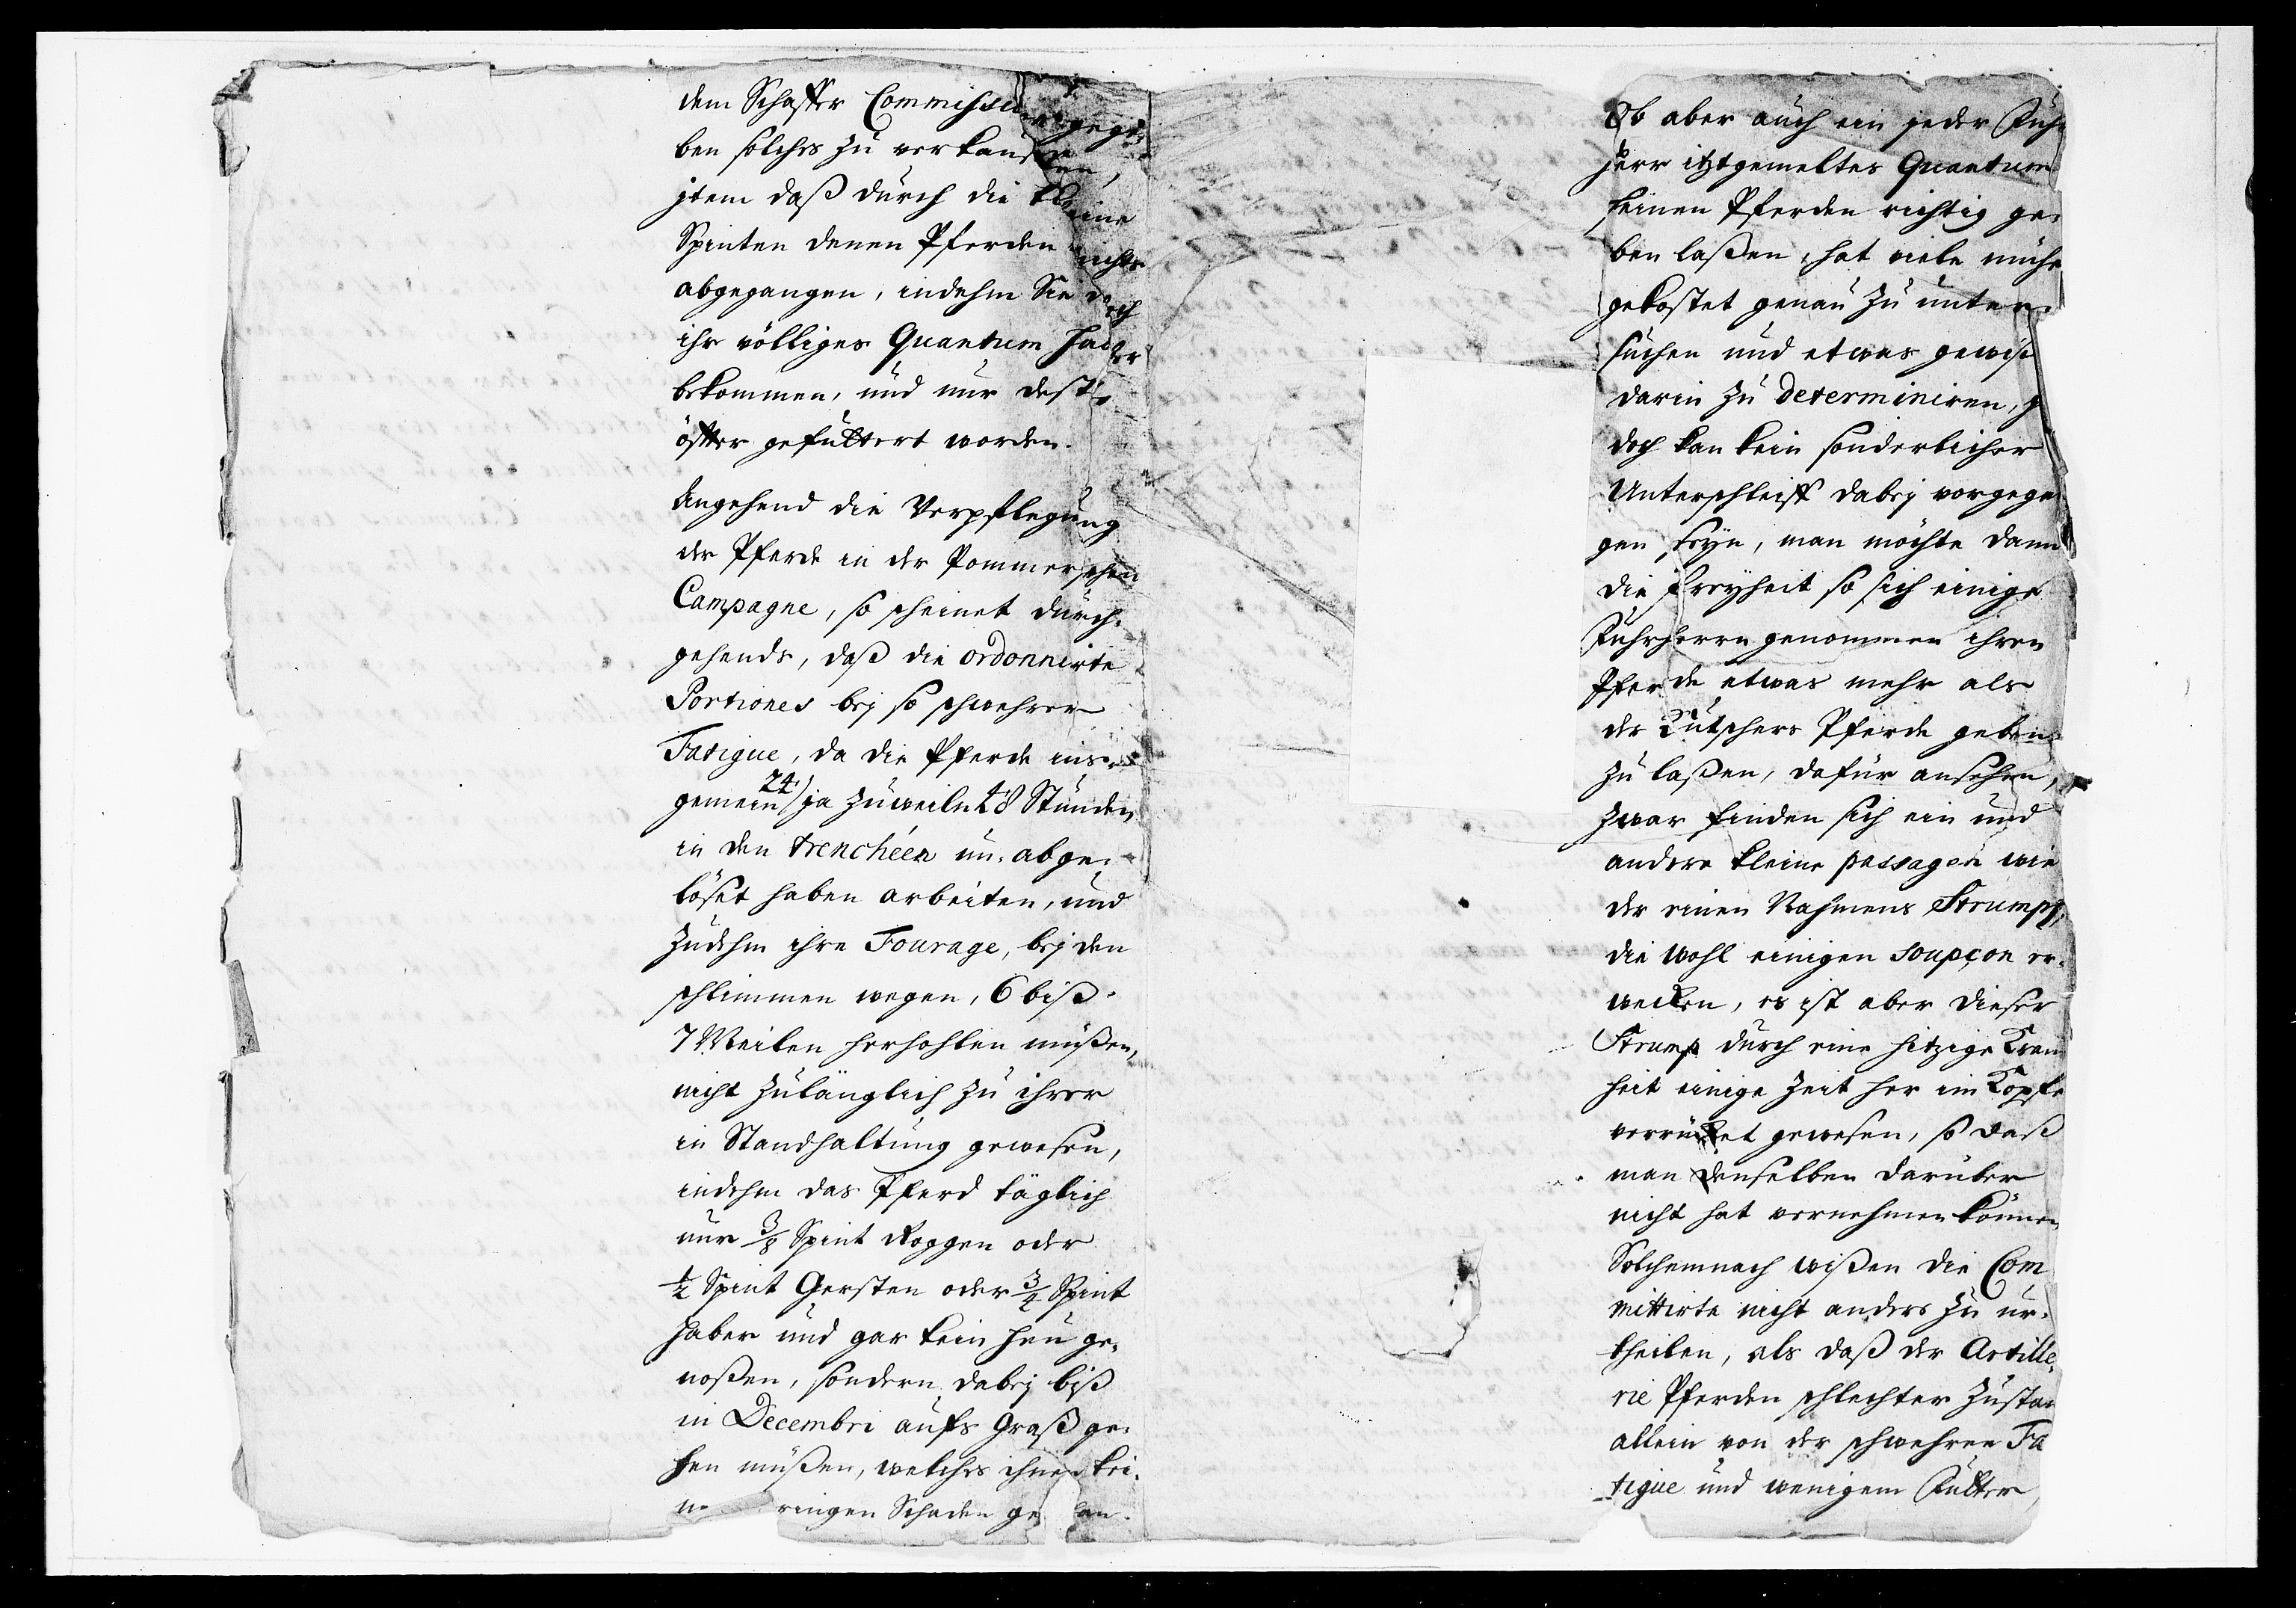 dem Schaffer Commissu gege-
ben solches zu verkauffen,
jtem daß durch die kleine
Spinten denen Pferden nichts
abgegangen, indehm Sie doch
ihr völliges Quantum Haber
bekommen, und nur desto
öffter gefüttert worden.
Angehend die Verpflegung
der Pferde in der Pommerschen
Campagne, so scheinet durch-
gehends, daß die ordonnirte
Portiones bej so schwehrer
Fatigue, da die Pferde ins-
gemein 24 ja zuweiln 48 Stunden
in den trenchéen un-abge-
löset haben arbeiten, und
zudehm ihre Fourage, bej den
schlimmen wegen, 6 biß
7 Meilen herhohlen müßen,
nicht zulänglich zu ihrer
in Standhaltung gewesen,
indehm das Pferd täglich
nur 3/8 Spint Roggen oder
1/2 Spint Gersten oder 3/4 Spint
Haber und gar kein Heu ge-
noßen, sondern dabej biß
in Decembri aufs Graß ge-
hen müßen, welches ihnen kei-
ringen Schaden ge an.
Ob aber auch ein jeder Fuhr
Herr itztgemeltes Quantum
seinen Pferden richtig ge-
ben laßen, hat viele mühe
gekostet genau zu unter-
suchen und etwas gewiß
darin zu determiniren, j
doch kan kein sonderlicher
Unterschleiff dabej vorgegan
gen seyn, man möchte dann
die freyheit so sich einige
Fuhrherrn genommen ihren
Pferde etwas mehr als
der Kutschers Pferde geben
zu laßen, dafür ansehen,
zwar finden sich ein und
andere kleine passagen wie
der einen Nahmens Strumpf,
die wohl einigen soupçon er-
wecken, es ist aber dieser
Strump durch eine hitzige Kran
heit einige Zeit her im Kopfe
verrücket gewesen, so daß
man denselben darüber
nicht hat vernehmen können
Solchemnach wißen die Com
mittirte nicht anders zu ur-
theilen, als daß der Artille-
rie Pferden schlechter Zustan
allein von der schwehren Fa
tigue und wenigem Futter